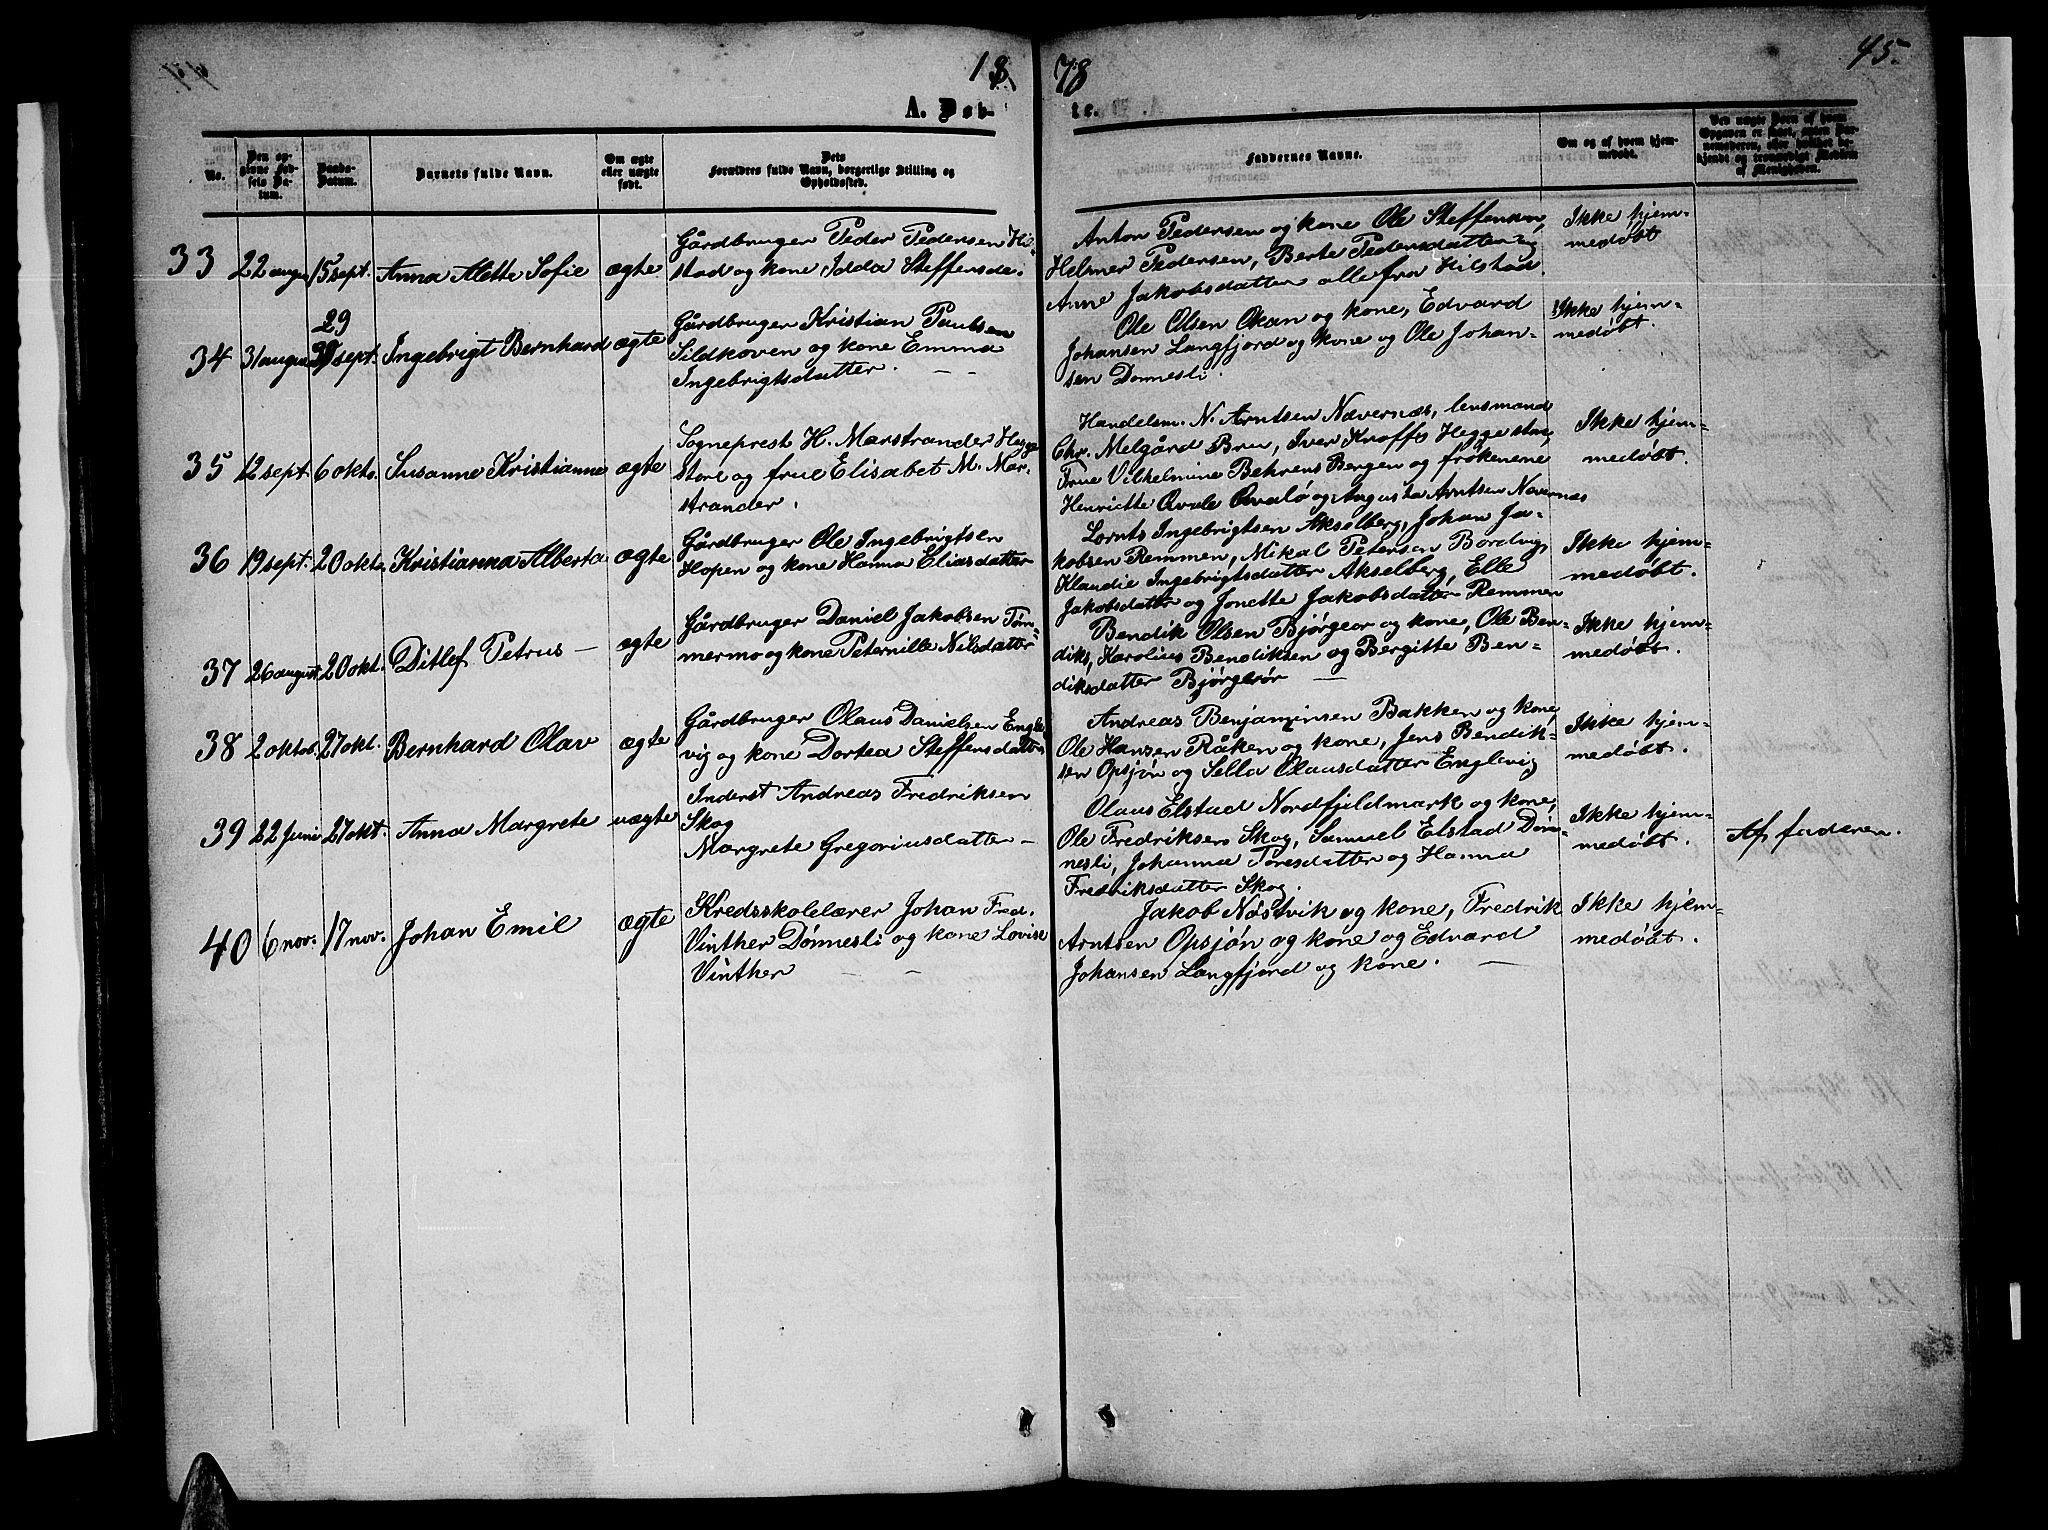 1878
45.
A. Døb-
te.
No.
Den op-
givne Fød-
sels Da-
tum.
Daabs-
Datum.
Barnets fulde Navn.
Om ægte
eller uægte
født.
Dets
Forældres fulde Navn, borgerlige Stilling og
Opholdssted.
Faddernes Navne.
Om og af hvem hjem-
medøbt.
Ved uægte Børn af hvem
Opgaven er skeet, enten Bar-
nemoderen, eller hvilket be-
kjendt og troværdigt Medlem
af Menigheden.
33 22 august 15 sept. Anna Alette Sofie ægte
Gårdbruger Peder Pedersen Hil-
stad og kone Idda Steffensda.
Anton Pedersen og kone Ole Steffensen,
Helmer Pedersen, Berte Pedersdatter og
Anne Jakobsdatter alle fra Hilstad.
Ikke hjem-
medøbt
34 31 august 29 sept. Ingebrigt Bernhard ægte
Gårdbruger Kristian Paulsen
Sildkoven og kone Emma
Ingebrigtsdatter.
Ole Olsen Okan og kone, Edvard
Johansen Langfjord og kone og Ole Johan-
sen Dønnesli.
Ikke hjem-
medøbt.
35 12 sept. 6 okto. Susanne Kristianne ægte
Sogneprest H. Marstrander Hegge
stad og frue Elisabet M. Mar-
strander.
Handelsm. N. Arntsen Nævernæs, lensmand
Chr. Melgård Bru, Iver Knoffs Heggestad,
Frue Vilhelmine Behrens Bergen og frøkenerne
Henriette Qvale Qvalø og Augusta Arntsen Nævernæs
Ikke hjem-
medøbt.
36 19 sept. 20 okto. Kristianna Alberta ægte
Gårdbruger Ole Ingebrigtsen
Hopen og kone Hanna Eliasdatter
Lornts Ingebrigtsen Akselberg, Johan Ja-
kobsen Remmen, Mikal Petersen Bordvig,
Klaudie Ingebrigtsdatter Akselberg, Elle
Jakobsdatter og Jonette Jakobsdatter Remmen
Ikke hjem-
medøbt.
37 26 august 20 okt. Ditlef Petrus ægte
Gårdbruger Daniel Jakobsen Tøm-
mermo og kone Peternille Nilsdatter
Bendik Olsen Bjørgeør og kone, Ole Ben-
diks, Karolius Bendiksen og Bergitte Ben-
diksdatter Bjørgeør
Ikke hjem-
medøbt.
38 2 oktob. 27 okt. Bernhard Olav ægte
Gårdbruger Olaus Danielsen Engle-
vig og kone Dortea Steffensdatter
Andreas Benjaminsen Bakken og kone,
Ole Hansen Råken og kone, Jens Bendik-
sen Opsjøn og Sella Olausdatter Englevig
Ikke hjem-
medøbt.
39 22 juni 27 okt. Anna Margrete uægte
Inderst Andreas Fredriksen
Skog
Margrete Gregoriusdatter
Olaus Elstad Nordfjeldmark og kone,
Ole Fredriksen Skog, Samuel Elstad Døn-
nesli, Johanna Toresdatter og Hanna
Fredriksdatter Skog.
Ikke hjem-
medøbt.
Af faderen.
40 6 nov. 17 nov. Johan Emil ægte
Kredsskolelærer Johan Fred.
Vinther Dønnesli og kone Lovise
Vinther
Jakob Nøstvik og kone, Fredrik
Arntsen Opsjøn og kone og Edvard
Johansen Langfjord og kone.
Ikke hjem-
medøbt.